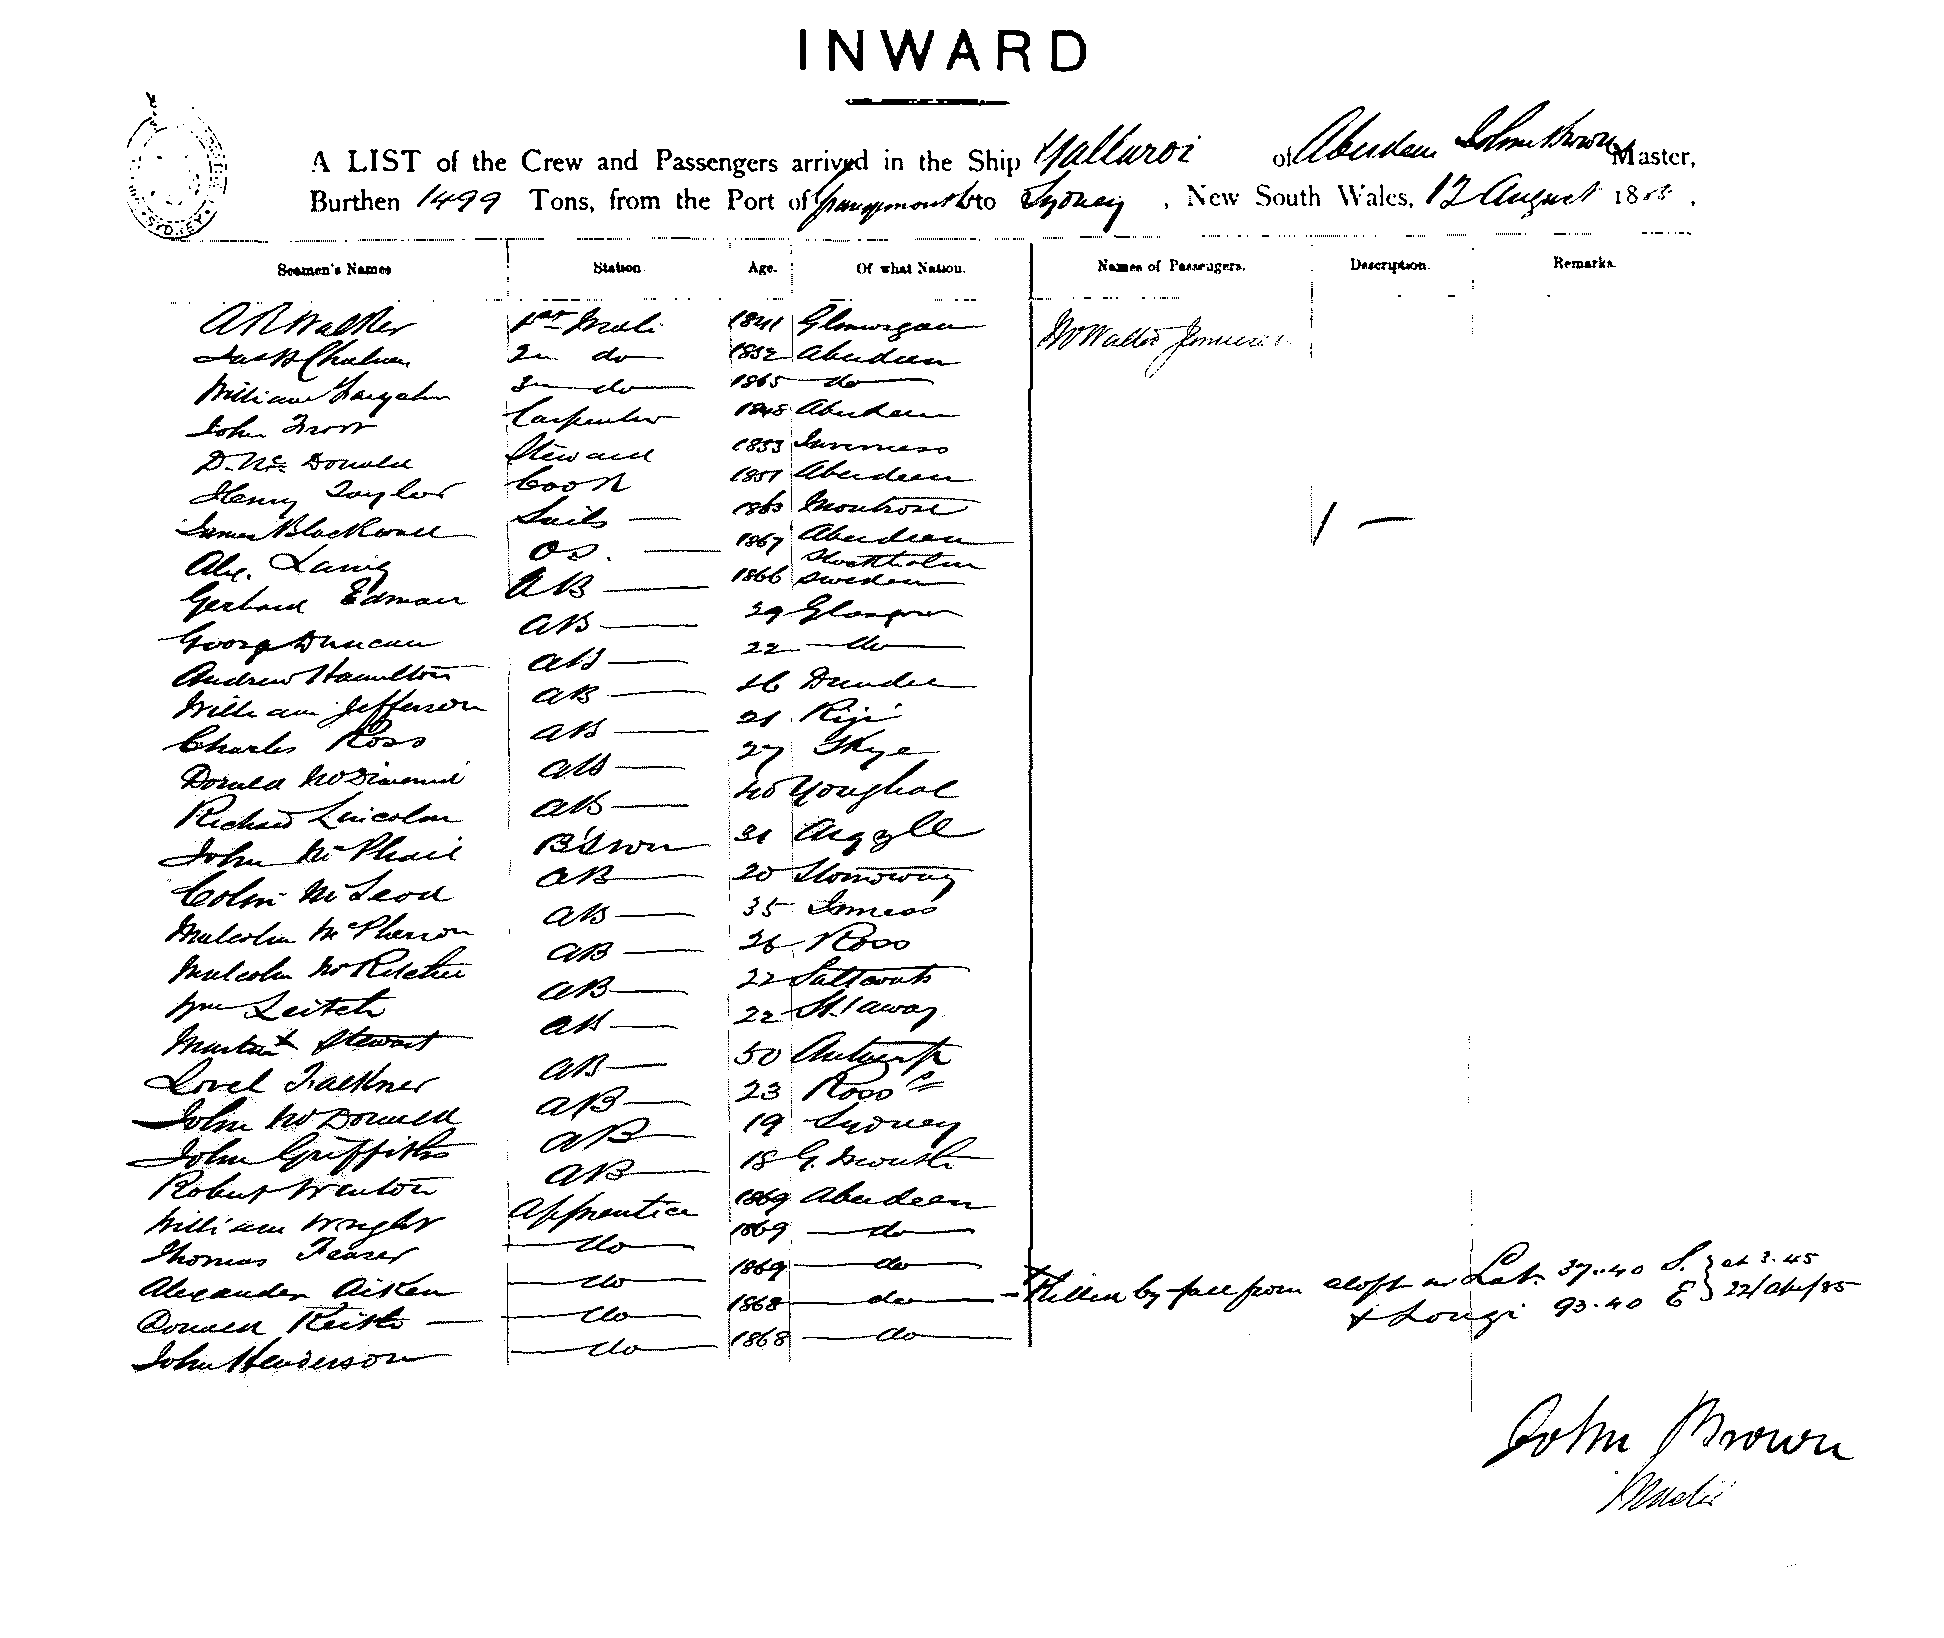 INWARD
A LIST of the Crew and Passengers arrived in the Ship Yallaroi of Aberdeen John Brown Master,
Burthen 1499 Tons, from the Port of to Sydney, New South Wales, 12 August 188 .
Seamen's Names Station. Age. Of what Nation. Names of Passengers. Description. Remarks.
A R Walker 1841 Glamorgan Walter
2 do 1852 Aberdeen
William 3 do 1865 do
John Carpenter 1848 Aberdeen
D. Mc Donald Steward 1853 Inverness
Henry Taylor Cook 1857 Aberdeen
James Blackwall Sails 1863 Montrose
Alex. Laing OS. 1867 Aberdeen
Gerhard Edman AB 1866 Stockholm Sweden
George Duncan AB 29 Glasgow
Andrew Hamilton AB 22 do
William Jefferson AB 26 Dundee
Charles Ross AB 21
Donald AB 27 Skye
Richard Lincoln AB 40 Youghal
John McPhail B'swn 31 Argyll
Colin McLeod AB 20 Stornoway
Malcolm McPherson AB 35
Malcolm McRitchie AB 26 Ross
Wm Leitch AB 22 Saltcoats
Martin Stewart AB 22 St.
Lovel Falkner AB 50 Antwerp
John McDonald AB 23 Ross
John Griffiths AB 19 Sydney
Robert AB 18 G. mouth
William Wright Apprentice 1869 Aberdeen
Thomas Fraser do 1869 do
Alexander Aiken do 1869 do
Donald Keith do 1868 do Killed by fall from aloft in Lat. 37.40 S. at 3.45
& Longi 93.40 E 22/ /85
John Henderson do 1868 do
John Brown
Master